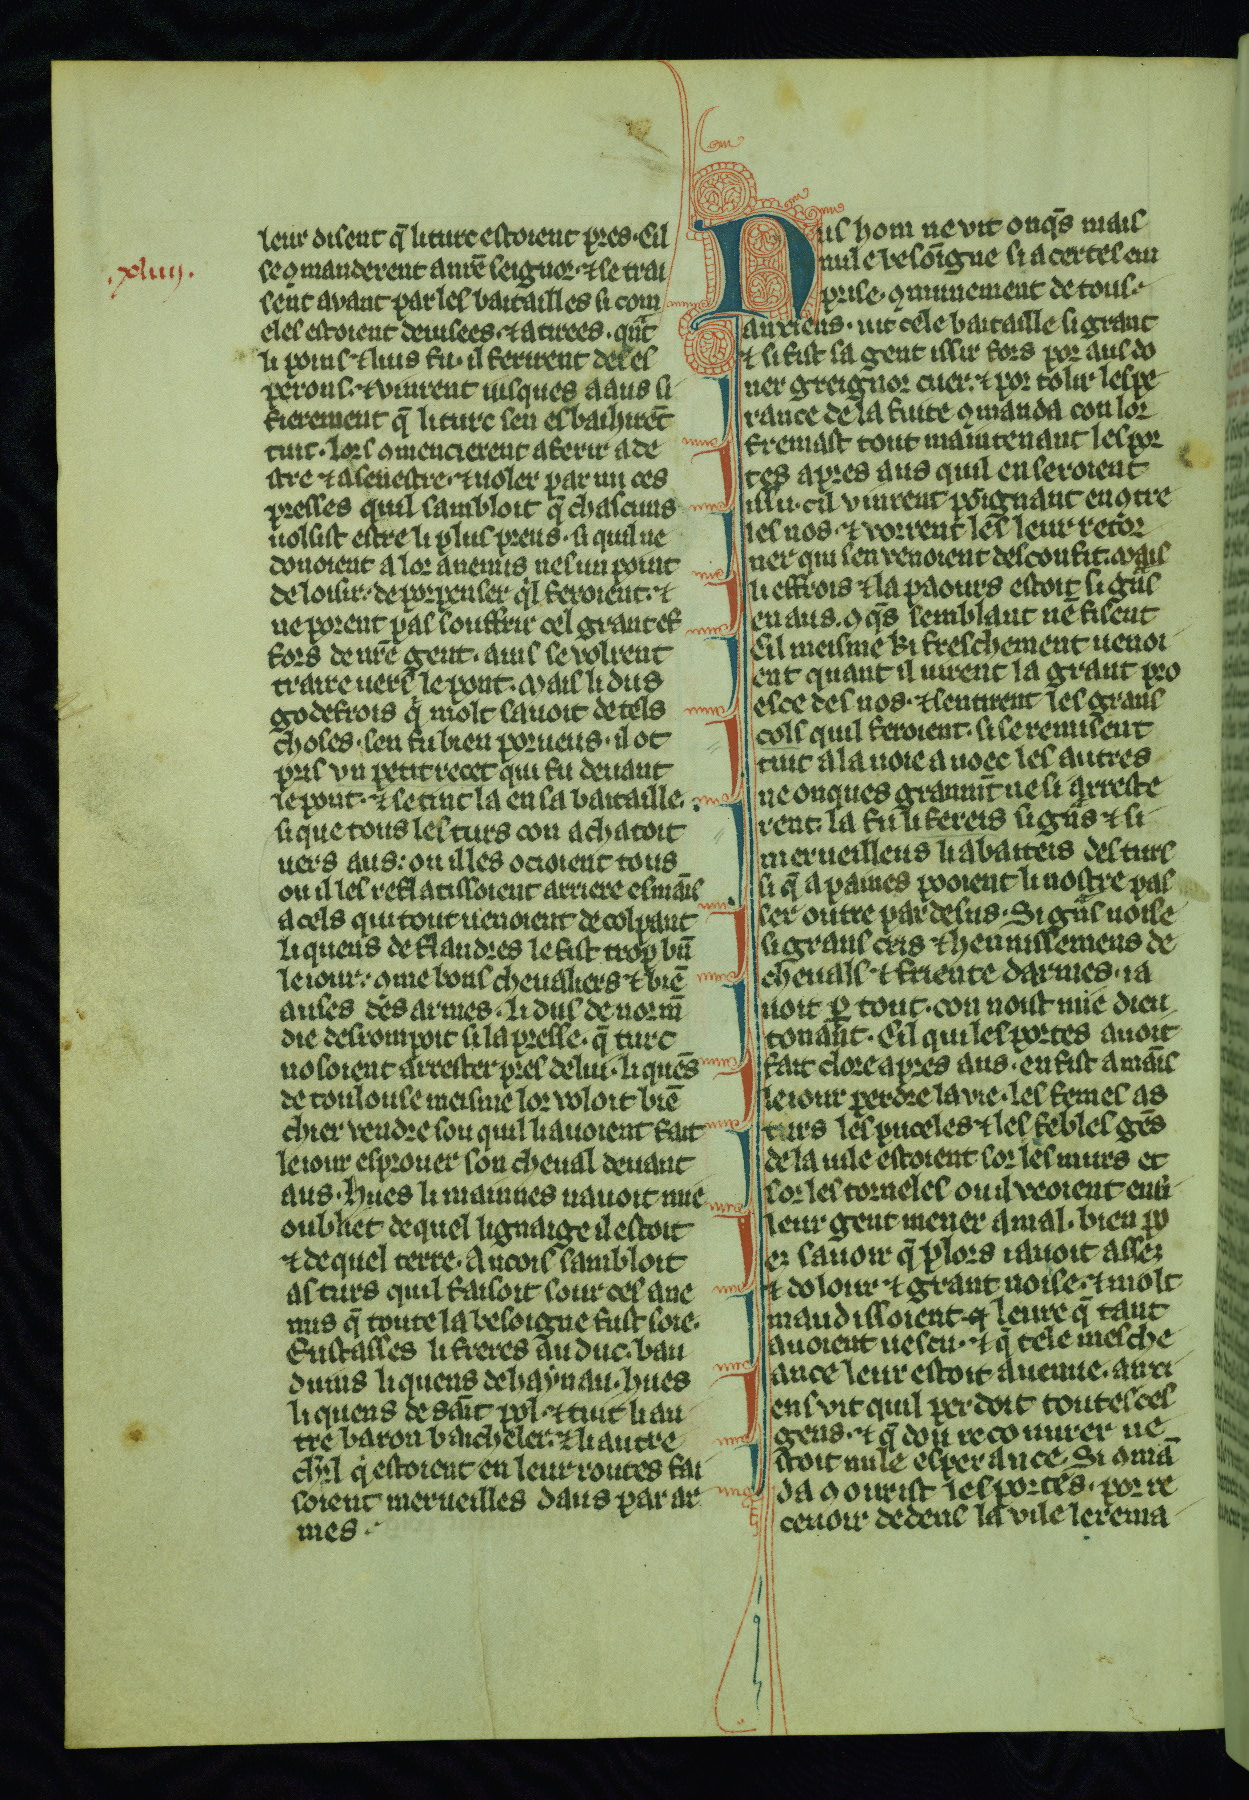 .xluij.
leur disent q̃ li turc estoient pres. Cil
se ꝯmanderent a nr̃e seignor. ⁊ se trai
sẽt avant par les batailles si com
eles estoient deuisees. ⁊ atirees. qñt
li poins ⁊ lius fu. il ferirent des es
perons. ⁊ vinrent iusques a aus si
fierement q̃ li turc sen esbaihirẽt
tuit. Lors ꝯmencierent a ferir a de
stre ⁊ a senestre. ⁊ uoler par mi ces
presses quil sambloit q̃ chascuns
uolsist estre li plus preus. si quil ne
donoient a lor anemis nes un point
de loisir. de porpenser ql feroient. ⁊
ne porent pas souffrir cel grant ef
fors de nr̃e gent. ains se volrent
traire uers le pont. Mais li dus
godefrois q̃ molt sauoit de tels
choses. sen fu bien porueus. il ot
pris vn petit recet qui fu deuant
le pont. ⁊ se tint la en sa bataille.
si que tous les turs con achatoit
uers aus: ou illes ocioient tous
ou il les reflatissoient arriere es mais̃
a cels qui tout uenoient decolpant
li quens de flandres le fist trop bñ
le iour. ꝯme bons cheualiers ⁊ biẽ
aufes des armes. li dus de norm̃
die desrompoit si la presse. q̃ turc
nosoient arrester pres de lui. li quẽs
de toulouse meisme lor voloit biẽ
chier vendre son quil li auoient fait
le iour esprouer son cheual deuant
aus. Hues li mainnes nauoit mie
oubliet de quel lignaige il estoit
⁊ de quel terre. Ancois sambloit
as turs quil faisoit sour ces ane
mis q̃ toute la besoigne fust soie.
Eustasses li freres au duc. bau
duins li quens de haynau. hues
li quens de sãit pol. ⁊ tuit li au
tre baron baicheler. ⁊ li autre
chr̃l q̃ estoient en leur routes fai
soient merueilles dans par ar
mes.
Nus hom ne vit onqs̃ mais
nule besoigne si a certes em
prise. ꝯmunement de tous.
anxiens. uit cele bataille si grant
⁊ si fist sa gent issir fors por aus do
ner greignor cuer. ⁊ por tolir lespe
rance de la fuite ꝯmanda con lor
fremast tout maintenant les por
tes apres aus quil en seroient
issu. cil vinrent poignant enꝯtre
les nos. ⁊ vorrent les leur retor
ner qui sen venoient desconfit. Mais
li effrois ⁊ la paours estoit si gñs
en aus. ꝯqs̃ semblant ne fisent
Cil meisme ki freschement uenoi
ent quant il uirent la grant pro
esce des nos. ⁊ sentirent les grans
cols quil feroient. si se remisent
tuit a la uoie auoec les autres
ne onques granmt̃ ne si arreste
rent. la fu li fereis si gñs ⁊ si
merueilleus li abateis des turs
si q̃ a paines pooient li nostre pas
ser outre par desus. Si gñs noise
si grans cris ⁊ hennissemens de
cheuals ⁊ friente darmes. ia
uoit ꝑ tout. con noist mie dieu
tonant. Cil qui les portes auoit
fait clore apres aus. en fist a mais̃
le iour perdre la vie. les femes as
turs les puceles ⁊ les febles gẽs
de la uile estoient sor les murs et
sor les torneles ou il veoient enñ
leur gent mener a mal. bien po
ez sauoir q̃ plors i auoit assez
⁊ dolour ⁊ grant noise. ⁊ molt
maudissoient leure q̃ tant
auoient uescu. ⁊ q̃ cele mesche
ance leur estoit auenue. anxi
ens vit quil perdoit toutes ces
gens. ⁊ q̃ dou recouurer ne
stoit nule esperance. Si ꝯmã
da ꝯ ourist les portes. por re
ceuoir dedens la vile le rema